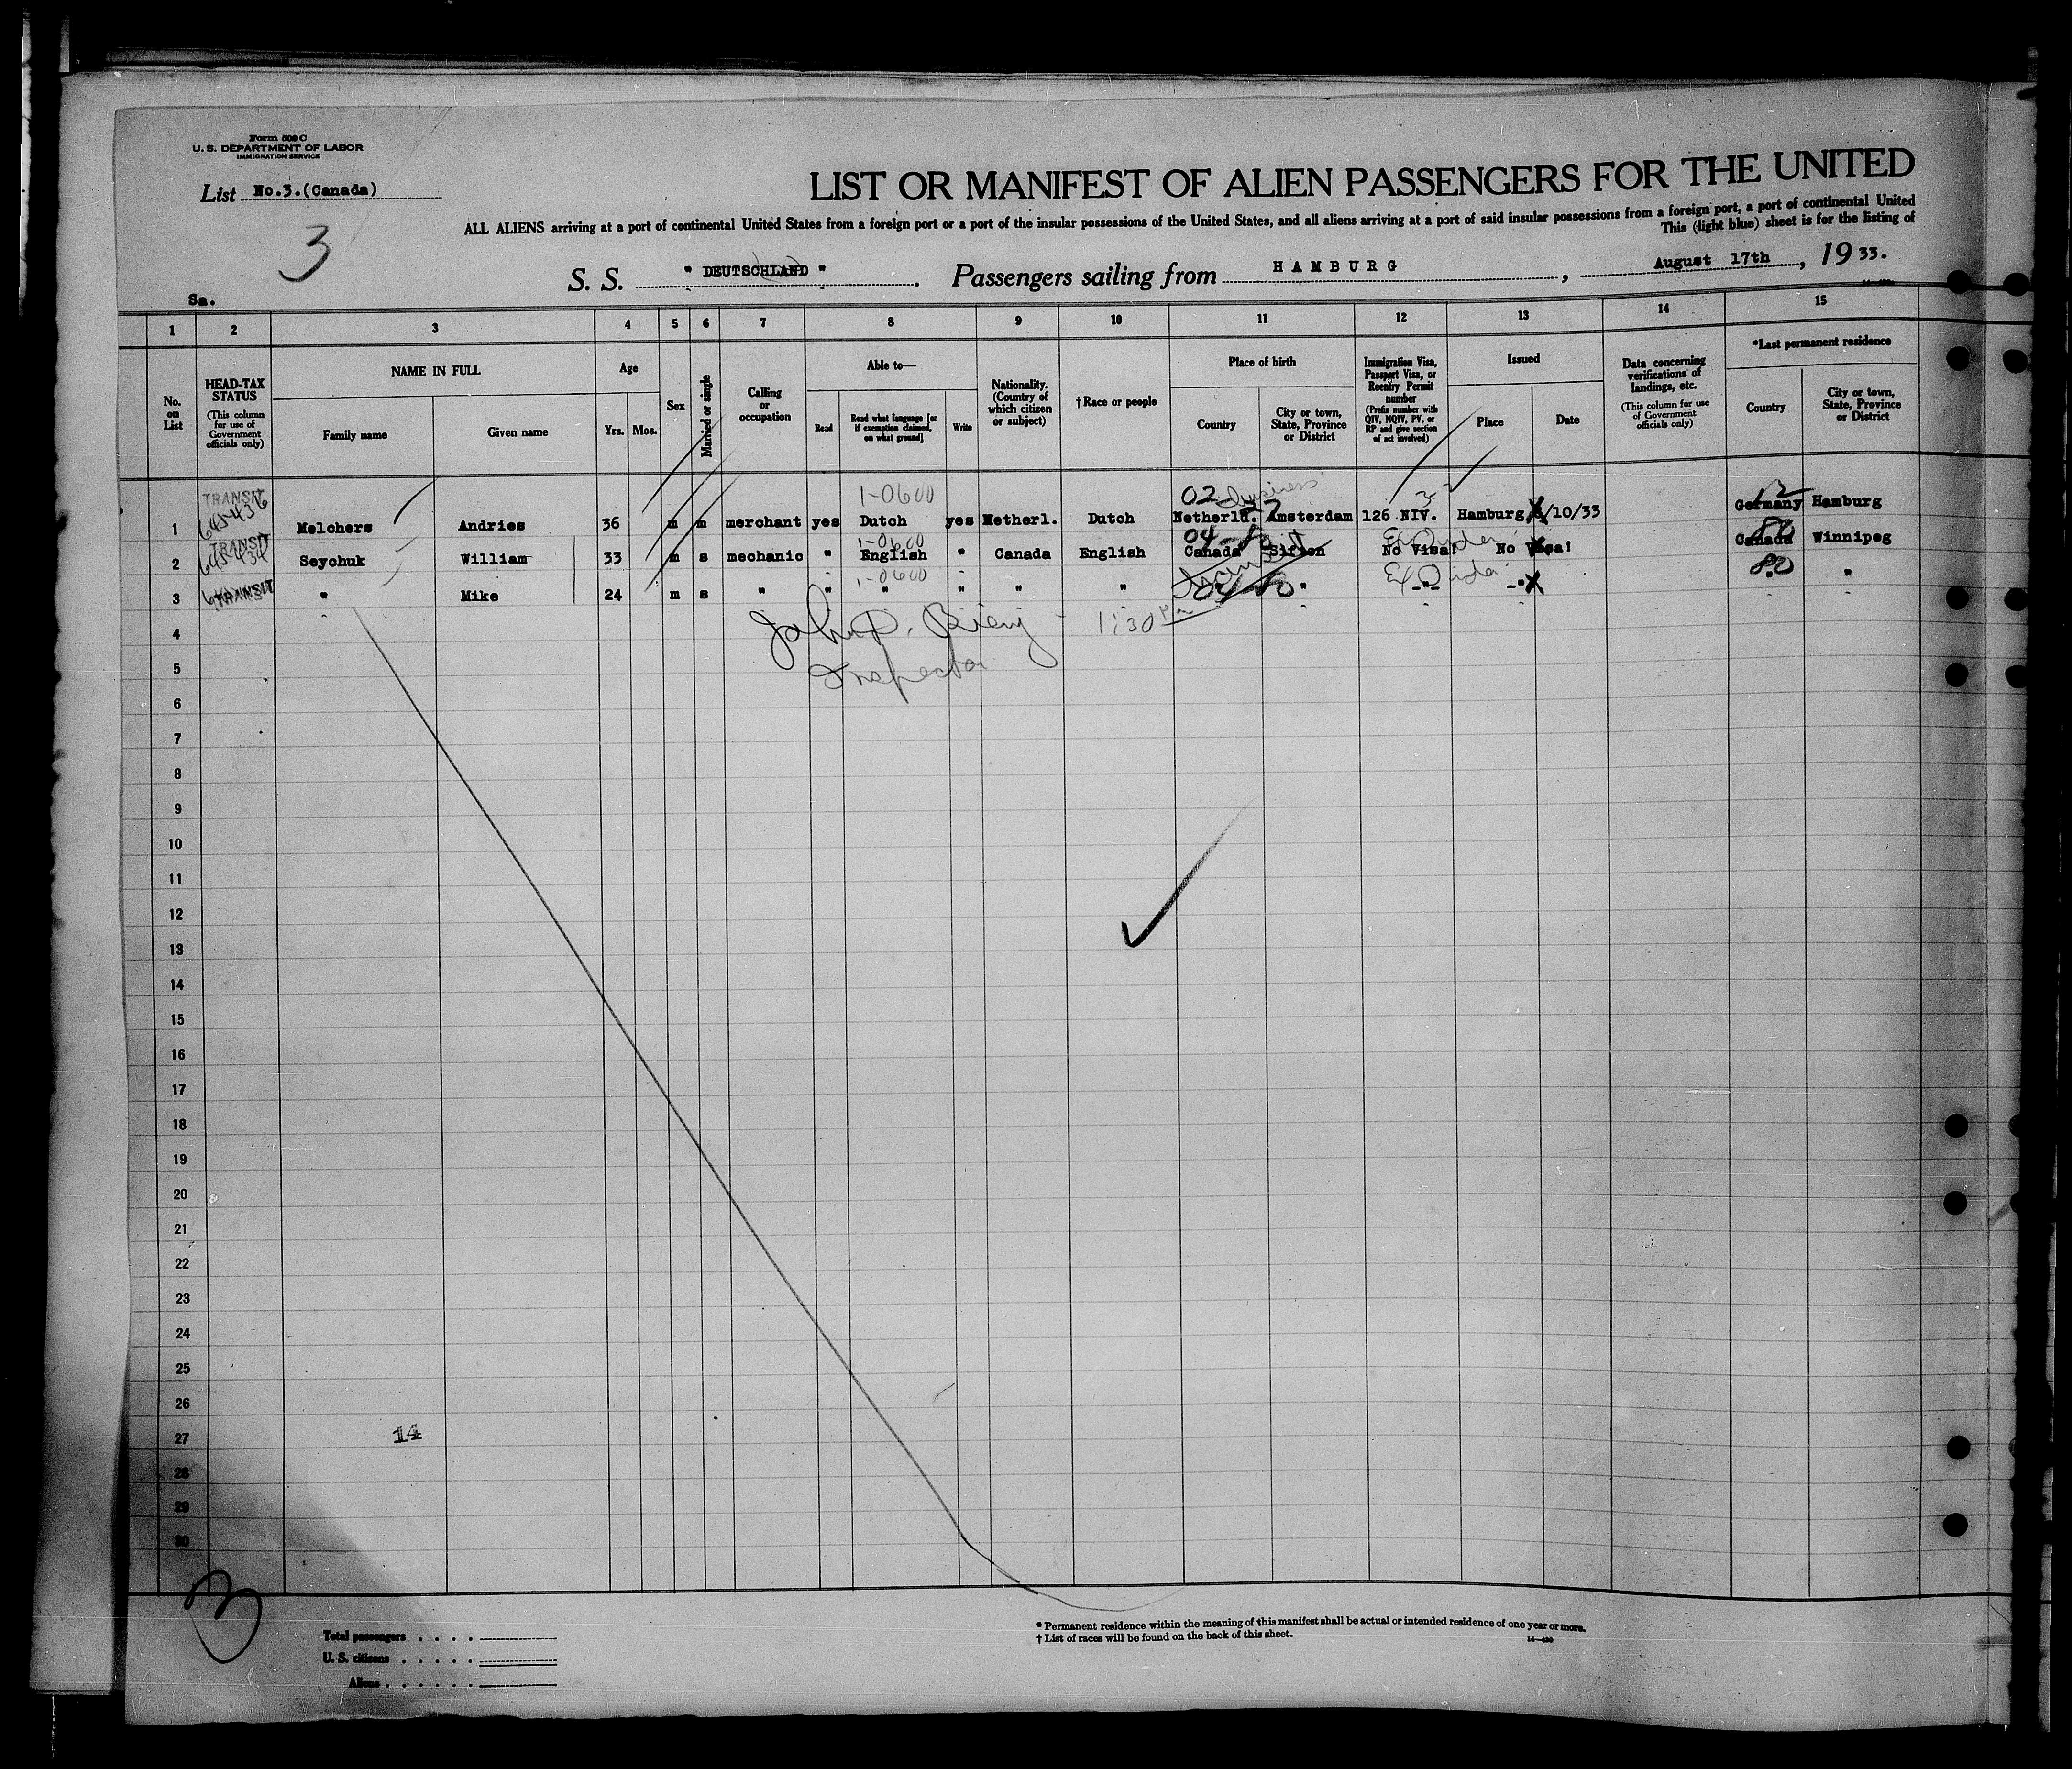 Form 500 C
U. S. DEPARTMENT OF LABOR
IMMIGRATION SERVICE
List No.3.(Canada)
3
Sa.
LIST OR MANIFEST OF ALIEN PASSENGERS FOR THE UNITED
ALL ALIENS arriving at a port of continental United States from a foreign port or a port of the insular possessions of the United States, and all aliens arriving at a port of said insular possessions from a foreign port, a port of continental United
This (light blue) sheet is for the listing of
S. S. " DEUTSCHLAND " . Passengers sailing from HAMBURG , August 17th , 19 33.
1 2 3 4 5 6 7 8 9 10 11 12 13 14 15
No. on List
HEAD-TAX STATUS
(This column for use of Government officials only)
NAME IN FULL
Family name
Given name
Age
Yrs. Mos.
Sex
Married or single
Calling or occupation
Able to—
Read
Read what language [or if exemption claimed, on what ground]
Write
Nationality. (Country of which citizen or subject)
†Race or people
Place of birth
Country
City or town, State, Province or District
Immigration Visa, Passport Visa, or Reentry Permit number
(Prefix number with QIV, NQIV, PV, or RP and give section of act involved)
Issued
Place
Date
Data concerning verifications of landings, etc.
(This column for use of Government officials only)
*Last permanent residence
Country
City or town, State, Province or District
TRANSIT 1-0600 02 business
1 645-436 Melchers Andries 36 m m merchant yes Dutch yes Netherl. Dutch Netherld. Amsterdam 126 NIV. Hamburg /10/33 Germany Hamburg
TRANSIT 1-0600 04-80
2 Seychuk William 33 m s mechanic " English " Canada English Canada Sifton No Visa! No Visa! Canada Winnipeg
1-0600 80
3 TRANSIT " Mike 24 m s " " " " " " " " -"- -" "
4 John P. 1:30 pm
5 Inspector
6
7
8
9
10
11
12
13
14
15
16
17
18
19
20
21
22
23
24
25
26
27 14
28
29
30
3
Total passengers . . . .
U. S. citizens . . . . .
Aliens . . . . . .
* Permanent residence within the meaning of this manifest shall be actual or intended residence of one year or more.
† List of races will be found on the back of this sheet.
14—430